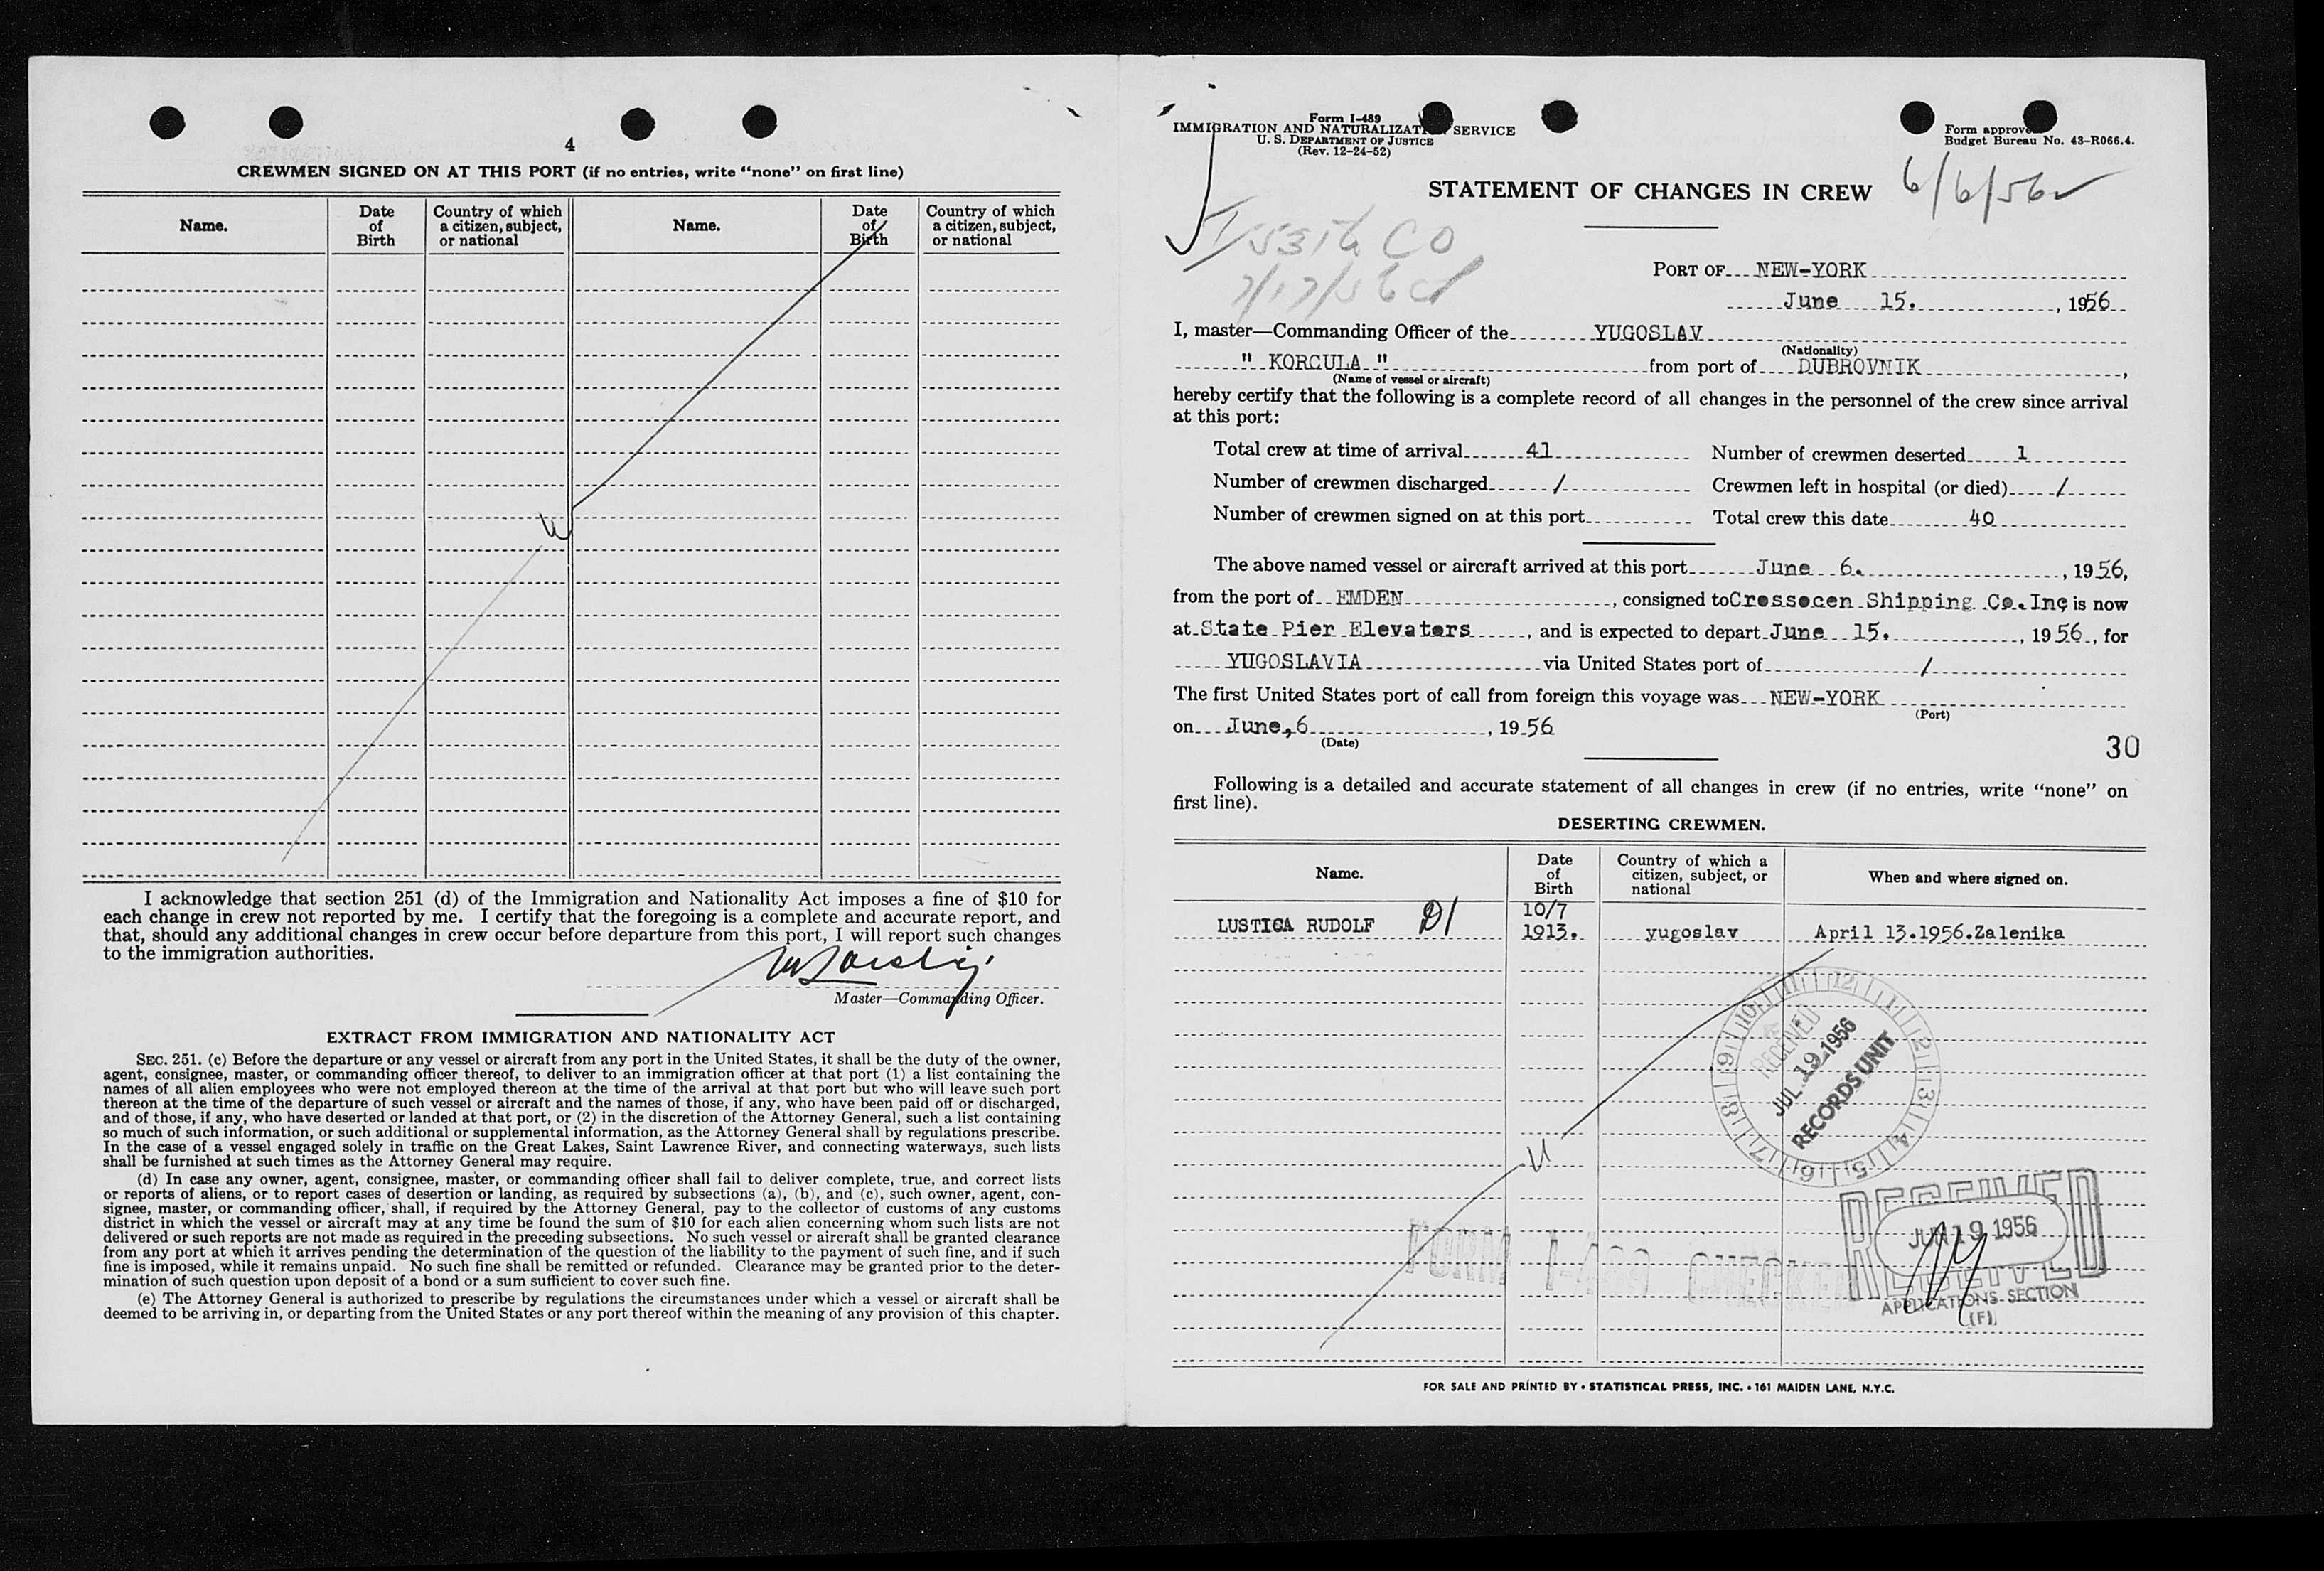 4
CREWMEN SIGNED ON AT THIS PORT (if no entries, write “none” on first line)
Name. Date of Birth Country of which a citizen, subject, or national Name. Date of Birth Country of which a citizen, subject, or national
I acknowledge that section 251 (d) of the Immigration and Nationality Act imposes a fine of $10 for
each change in crew not reported by me. I certify that the foregoing is a complete and accurate report, and
that, should any additional changes in crew occur before departure from this port, I will report such changes
to the immigration authorities.
Master—Commanding Officer.
EXTRACT FROM IMMIGRATION AND NATIONALITY ACT
SEC. 251. (c) Before the departure or any vessel or aircraft from any port in the United States, it shall be the duty of the owner,
agent, consignee, master, or commanding officer thereof, to deliver to an immigration officer at that port (1) a list containing the
names of all alien employees who were not employed thereon at the time of the arrival at that port but who will leave such port
thereon at the time of the departure of such vessel or aircraft and the names of those, if any, who have been paid off or discharged,
and of those, if any, who have deserted or landed at that port, or (2) in the discretion of the Attorney General, such a list containing
so much of such information, or such additional or supplemental information, as the Attorney General shall by regulations prescribe.
In the case of a vessel engaged solely in traffic on the Great Lakes, Saint Lawrence River, and connecting waterways, such lists
shall be furnished at such times as the Attorney General may require.
(d) In case any owner, agent, consignee, master, or commanding officer shall fail to deliver complete, true, and correct lists
or reports of aliens, or to report cases of desertion or landing, as required by subsections (a), (b), and (c), such owner, agent, con-
signee, master, or commanding officer, shall, if required by the Attorney General, pay to the collector of customs of any customs
district in which the vessel or aircraft may at any time be found the sum of $10 for each alien concerning whom such lists are not
delivered or such reports are not made as required in the preceding subsections. No such vessel or aircraft shall be granted clearance
from any port at which it arrives pending the determination of the question of the liability to the payment of such fine, and if such
fine is imposed, while it remains unpaid. No such fine shall be remitted or refunded. Clearance may be granted prior to the deter-
mination of such question upon deposit of a bond or a sum sufficient to cover such fine.
(e) The Attorney General is authorized to prescribe by regulations the circumstances under which a vessel or aircraft shall be
deemed to be arriving in, or departing from the United States or any port thereof within the meaning of any provision of this chapter.
Form I-489
IMMIGRATION AND NATURALIZATION SERVICE
U. S. DEPARTMENT OF JUSTICE
(Rev. 12-24-52)
Form approved
Budget Bureau No. 43-R066.4.
STATEMENT OF CHANGES IN CREW
6/6/56
PORT OF NEW-YORK
June 15. , 1956
I, master—Commanding Officer of the YUGOSLAV
(Nationality)
" KORCULA " from port of DUBROVNIK ,
(Name of vessel or aircraft)
hereby certify that the following is a complete record of all changes in the personnel of the crew since arrival
at this port:
Total crew at time of arrival 41 Number of crewmen deserted 1
Number of crewmen discharged / Crewmen left in hospital (or died) /
Number of crewmen signed on at this port Total crew this date 40
The above named vessel or aircraft arrived at this port June 6. , 1956,
from the port of EMDEN , consigned to Crossocen Shipping Co. Inc is now
at State Pier Elevators , and is expected to depart June 15. , 1956 , for
YUGOSLAVIA via United States port of /
The first United States port of call from foreign this voyage was NEW-YORK
(Port)
on June,6 , 1956
(Date)
30
Following is a detailed and accurate statement of all changes in crew (if no entries, write “none” on
first line).
DESERTING CREWMEN.
Name. Date of Birth Country of which a citizen, subject, or national When and where signed on.
LUSTICA RUDOLF 10/7 1913. yugoslav April 13.1956.Zalenika
12 1 2 3 4 5 6 7 8 9 10 11
RECEIVED
JUL 19 1956
RECORDS UNIT
FORM I-489 CHECKED
RECEIVED
JUN 19 1956
APPLICATIONS SECTION
(F)
FOR SALE AND PRINTED BY • STATISTICAL PRESS, INC. • 161 MAIDEN LANE, N.Y.C.